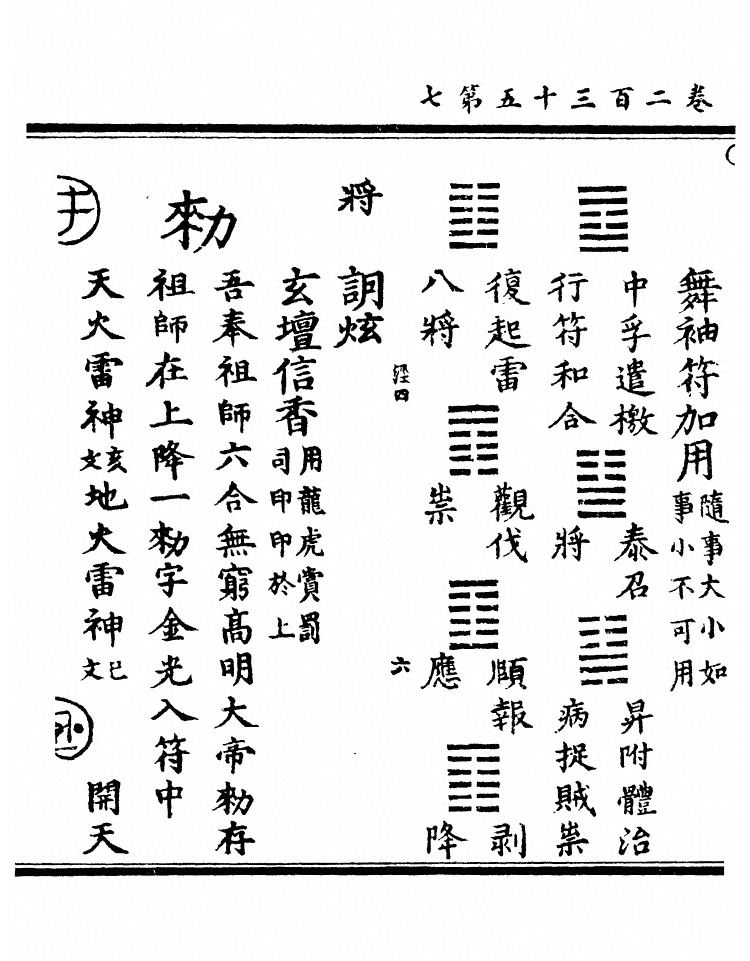 卷二百三十五第七
舞袖符加用
隨事大小如
事小不可用
中孚遣檄
行符和合
泰召
將
昇附體治
病捉賊祟
復起雷
八將
觀伐
祟
頤報
應
剥
降
經四
六
將
詗炫
玄壇信香
用龍虎賞罰
司印印於上
吾奉祖師六合無窮高明大帝勑存
勑
祖師在上降一勑字金光入符中
天火雷神亥文地火雷神巳文
開天